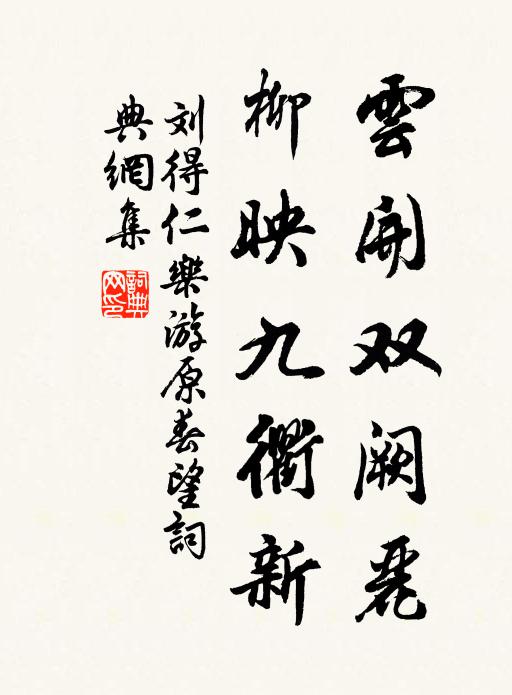 雲開双阙麗
柳映九衢新
刘得仁樂游原春望詞
典網集
詞典网印